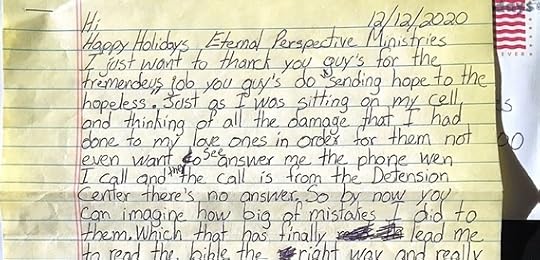 Hi 12/12/2020
Happy Holidays Eternal Perspective Ministries
I just want to thank you guy's for the
tremendeus job you guy's do sending hope to the
hopeless. Just as I was sitting on my cell,
and thinking of all the damage that I had
done to my love ones in order for them not
even want to see answer me the phone wen
I call and the the call is from the Detension
Center there's no answer. So by now you
can imagine how big of mistakes I did to
them. Which that has finally lead me
to read the bible the right way and really
EVER